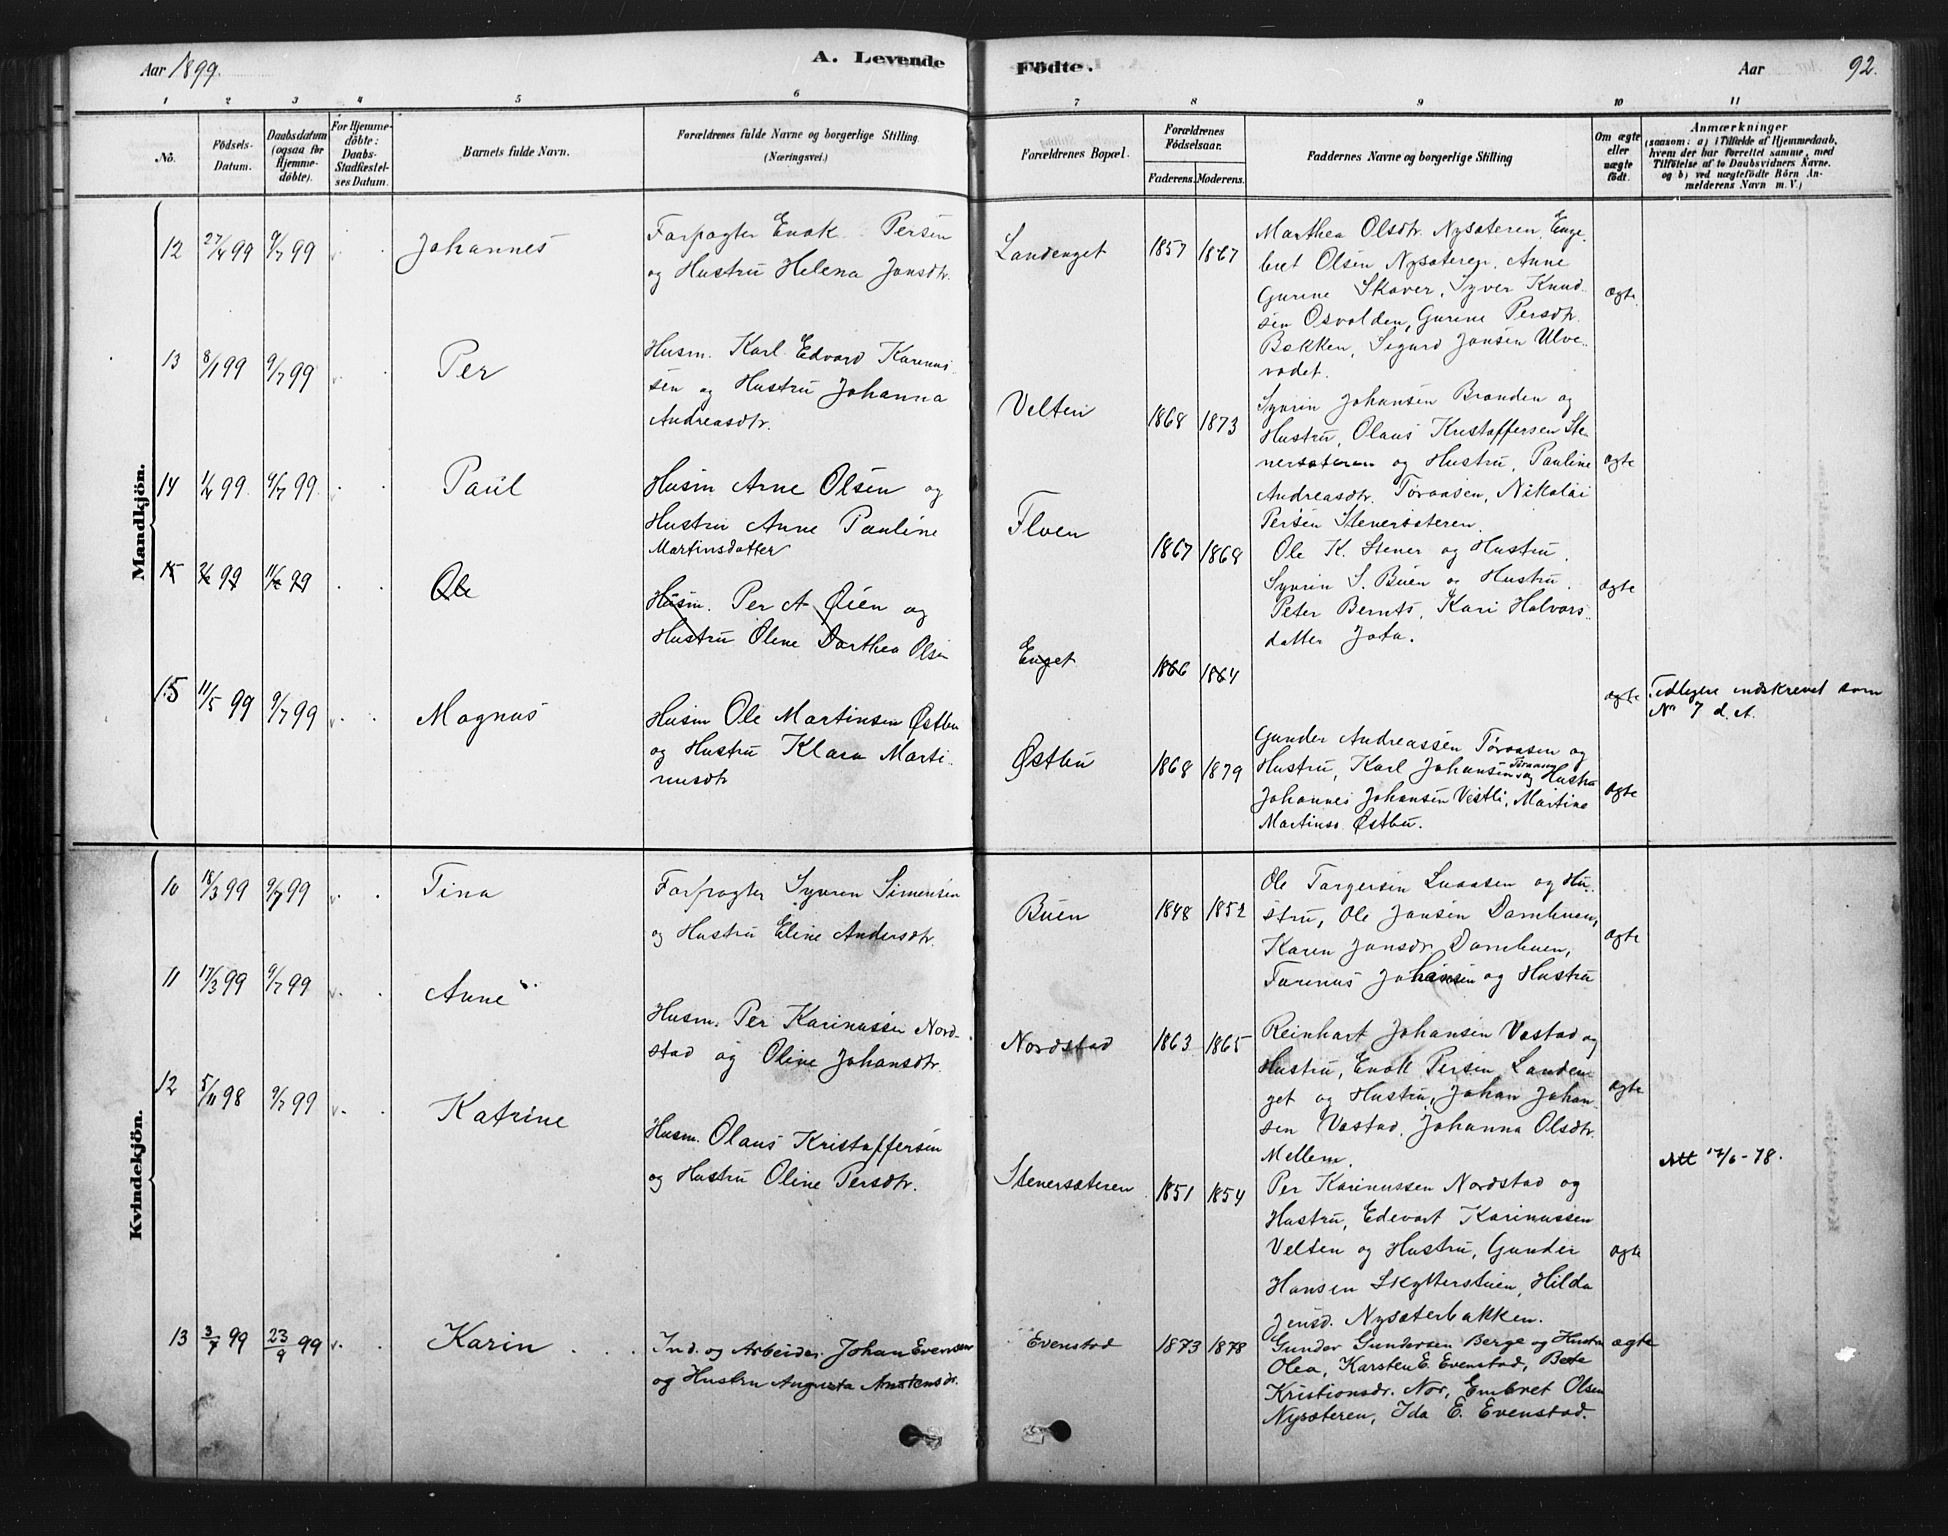 Aar 1899.
A. Levende
Födte.
Aar 92.
1 2 3 4 5 6 7 8 9 10 11
No.
Födsels-
Datum.
Daabsdatum
(ogsaa for
Hjemme-
döbte).
For Hjemme-
döbte:
Daabs-
Stadfæstel-
ses Datum.
Barnets fulde Navn.
Forældrenes fulde Navne og borgerlige Stilling.
(Næringsvei.)
Forældrenes Bopæl.
Forældrenes
Födselsaar.
Faderens. Moderens.
Faddernes Navne og borgerlige Stilling
Om ægte
eller
uægte
födt.
Anmærkninger
(saasom: a) i Tilfælde af Hjemmedaab,
hvem der har forrettet samme, med
Tilföielse af to Daabsvidners Navne,
og b) ved uægtefödte Börn An-
melderens Navn m. V.)
Mandkjön.
12 27/4 99 9/7 99 Johannes
Forpagter Enok Persen
og Hustru Helena Jonsdtr.
Landenget 1857 1867
Marthea Olsdtr. Nysæteren, Enge-
bret Olsen Nysæteren, Anne
Gurine Skaver, Syver Knud-
sen Osvolden, Gurine Persdtr.
Bekken, Sigurd Jansen Ulve-
vadet.
ægte
13 8/1 99 9/7 99 Per
Husm. Karl Edvard Karinus-
sen og Hustru Johanna
Andreasdtr.
Velten 1868 1873
Syvrin Johansen Branden og
Hustru, Olaus Kristoffersen Ste-
nersæteren og Hustru, Pauline
Andreasdtr. Tøraasen, Nikolai
Persen Stenersæteren.
ægte
14 1/4 99 9/7 99 Paul
Husm Arne Olsen og
Hustru Anne Pauline
Martinsdatter
Floen 1867 1868
Ole K. Stener og Hustru.
Syvrin S. Buen og Hustru.
Peter Bernts, Kari Halvors-
datter Jota.
ægte
15 99 99 Ole
Husm. Per A Øien og
Hustru Oline Dorthea Olsn
Enget 1866 1864
ægte
Tidligere indskrevet som
No 7 d. A.
15 11/5 99 9/7 99 Magnus
Husm Ole Martinsen Østbu
og Hustru Klara Marti-
nusdtr
Østbu 1868 1879
Gunder Andreassen Tøraasen og
Hustru, Karl Johansen Tøraasen og Hustru
Johannes Johansen Vestli, Martine
Martinss Østbu.
ægte
Kvindekjön.
10 18/3 99 9/7 99 Tina
Forpagter Syvren Simensen
og Hustru Eline Andersdtr.
Buen 1848 1852
Ole Torgersen Luaasen og Hu-
stru, Ole Jansen Dambuen,
Karen Jonsdr Dambuen,
Tarinus Johansen og Hustru
ægte
11 17/3 99 9/7 99 Anne
Husm. Per Karinussen Nord-
stad og Oline Johansdtr.
Nordstad 1863 1865
Reinhart Johansen Vastad og
Hustru, Enok Persen Landen-
get og Hustru, Johan Johan-
sen Vastad, Johanna Olsdtr.
Mellem.
ægte
12 5/11 98 9/7 99 Katrine
Husm. Olaus Kristoffersen
og Hustru Oline Persdtr.
Stenersæteren 1851 1854
Per Karinussen Nordstad og
Hustru, Edevart Karinussen
Velten og Hustru, Gunder
Hansen Skytterstuen, Hilda
Jensd. Nysæterbakken.
ægte
Att 17/6-78.
13 3/7 99 23/9 99 Karin
Ind. og Arbeider Johan Evensen
og Hustru Augusta Amtensdr.
Evenstad 1873 1878
Gunder Gundersen Berge og Hustru
Olea, Karsten E. Evenstad, Berte
Kristiansdr. Nor, Embret Olsen
Nysæteren, Ida E. Evenstad.
ægte